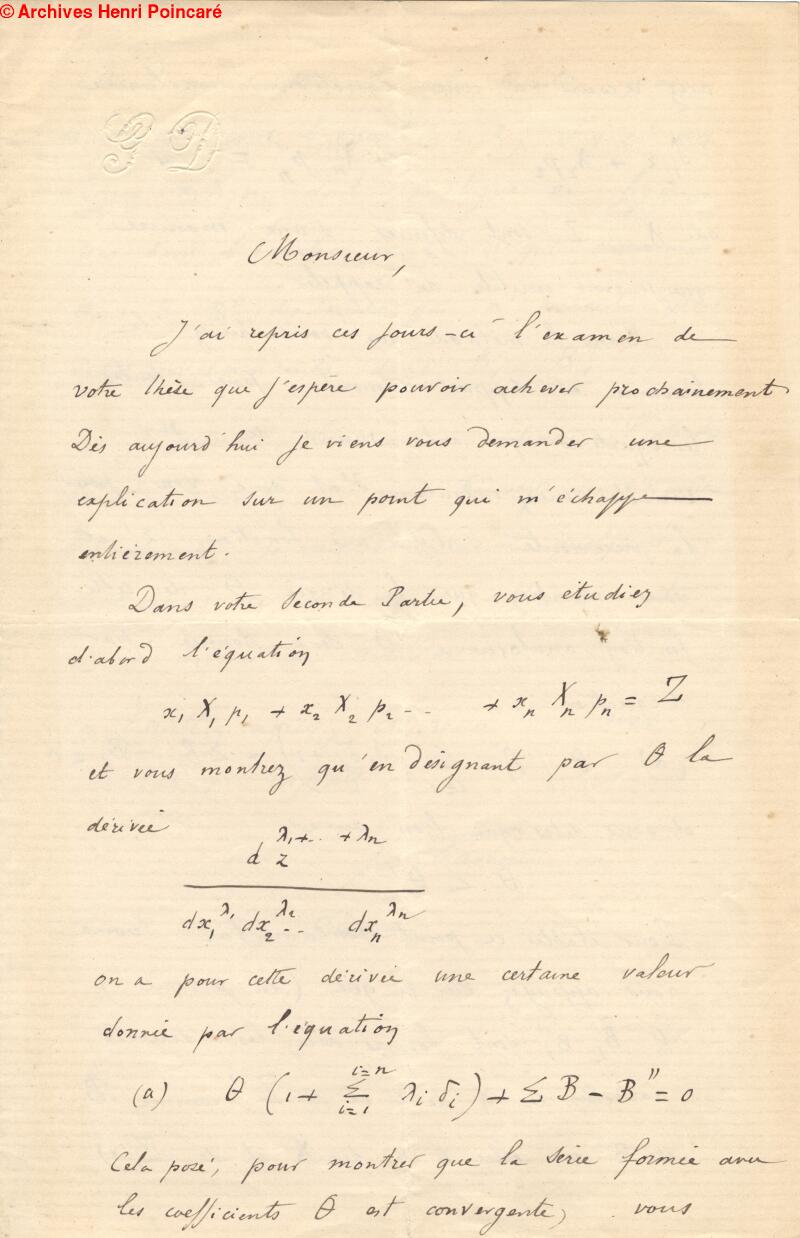 © Archives Henri Poincaré
G D
Monsieur,
J'ai repris ces jours-ci l'examen de
votre thèse que j'espère pouvoir achever prochainement
Dès aujourd'hui je viens vous demander une
explication sur un point qui m'échappe
entièrement.
Dans votre Seconde Partie, vous étudiez
d'abord l'équation
x₁ X₁ p₁ + x₂ X₂ p₂ ... + xₙ Xₙ pₙ = Z
et vous montrez qu'en désignant par θ la
dérivée
d^{λ₁+...+λₙ} z
dx₁^{λ₁} dx₂^{λ₂} ... dxₙ^{λₙ}
on a pour cette dérivée une certaine valeur
donnée par l'équation
(a) θ (1 + Σ_{i=1}^{i=n} λᵢ δᵢ) + Σ B - B'' = 0
Cela posé, pour montrer que la série formée avec
les coefficients θ est convergente, vous